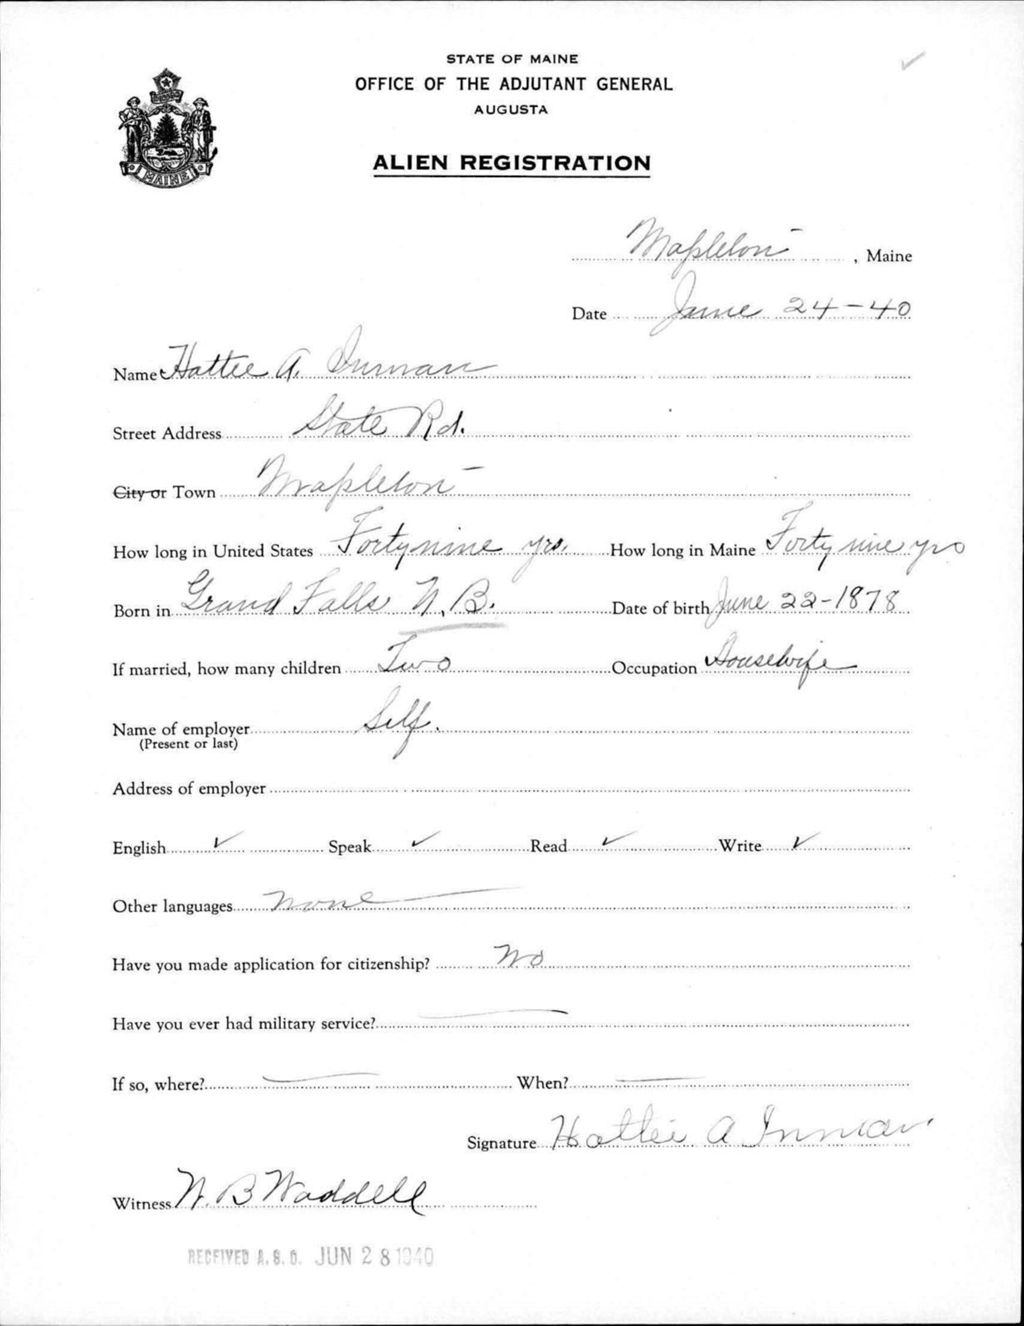 STATE OF MAINE
OFFICE OF THE ADJUTANT GENERAL
AUGUSTA
ALIEN REGISTRATION
MAINE
Mapleton, Maine
Date June 24-40
Name Hattie A. Inman
Street Address State Rd.
City or Town Mapleton
How long in United States Forty nine yrs. How long in Maine Forty nine yrs
Born in Grand Falls N.B. Date of birth June 22-1878
If married, how many children Two Occupation Housewife
Name of employer Self.
(Present or last)
Address of employer
English ✓ Speak ✓ Read ✓ Write ✓
Other languages none
Have you made application for citizenship? No
Have you ever had military service? —
If so, where? — When? —
Signature Hattie A Inman
Witness W. B Waddell
RECEIVED A.G.O. JUN 28 1940